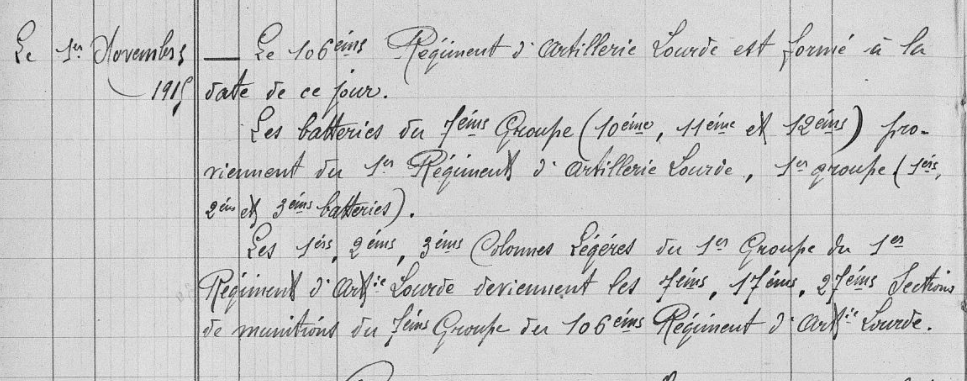 Le 1er Novembre — Le 106ème Régiment d'Artillerie Lourde est formé à la
1915 date de ce jour.
Les batteries du 7ème Groupe (10ème, 11ème et 12ème) pro-
viennent du 1er Régiment d'Artillerie Lourde, 1er groupe (1ère,
2ème et 3ème batteries).
Les 1ère, 2ème, 3ème Colonnes Légères du 1er Groupe du 1er
Régiment d'Artie Lourde deviennent les 7ème, 17ème, 27ème Sections
de munitions du 7ème Groupe du 106ème Régiment d'Artie Lourde.